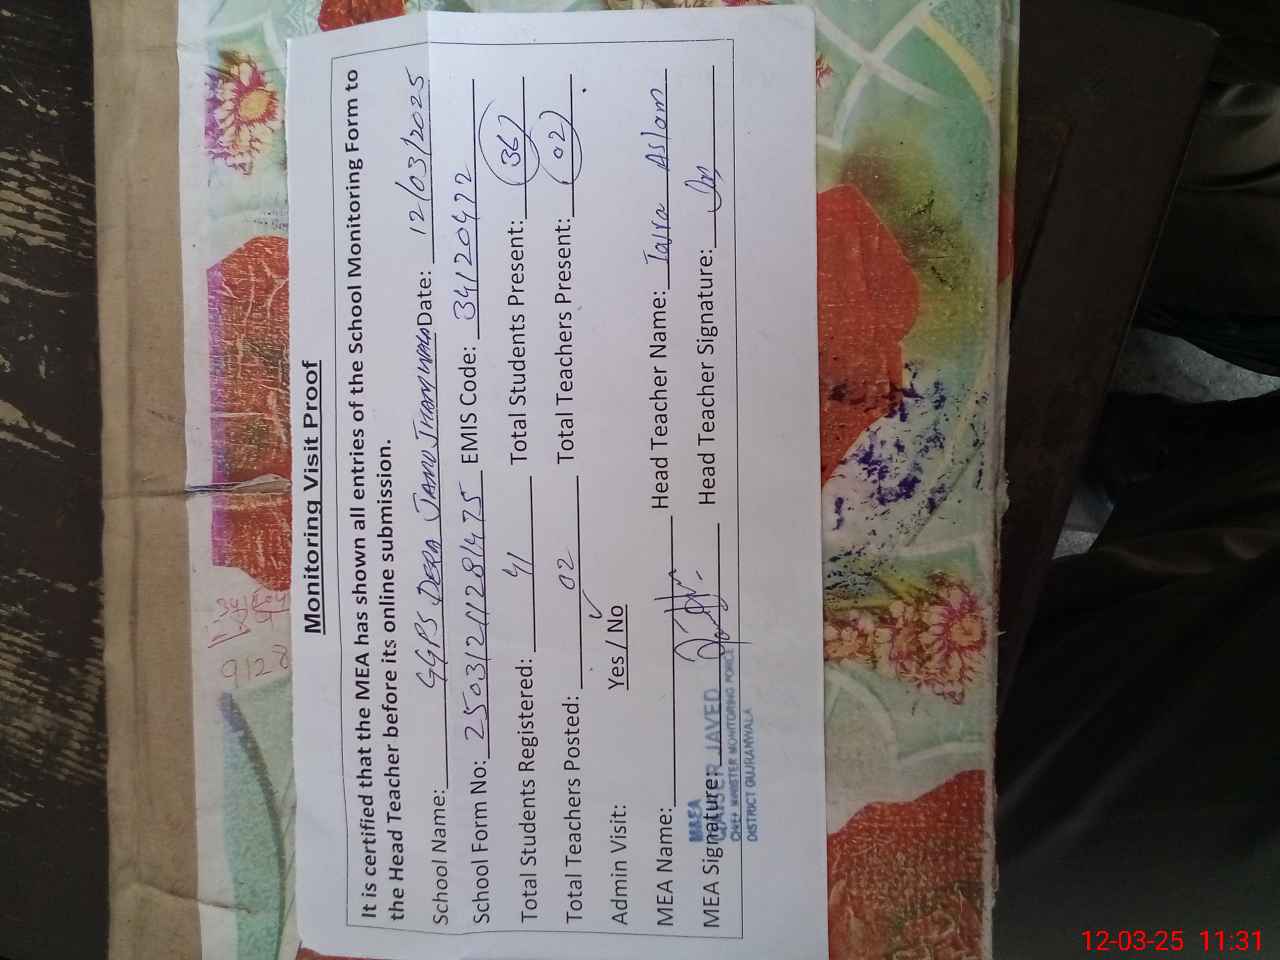 Monitoring Visit Proof
It is certified that the MEA has shown all entries of the School Monitoring Form to
the Head Teacher before its online submission.
School Name: GGPS DERA JAMU JHAMWALA Date: 12/03/2025
School Form No: 25031211281475 EMIS Code: 34120422
Total Students Registered: 41 Total Students Present: 36
Total Teachers Posted: 02 Total Teachers Present: 02
Admin Visit: Yes / No
MEA Name: Head Teacher Name: Aslam
MEA Signature: Head Teacher Signature:
M&EA
QAISER JAVED
CHIEF MINISTER MONITORING FORCE
DISTRICT GUJRANWALA
12-03-25 11:31